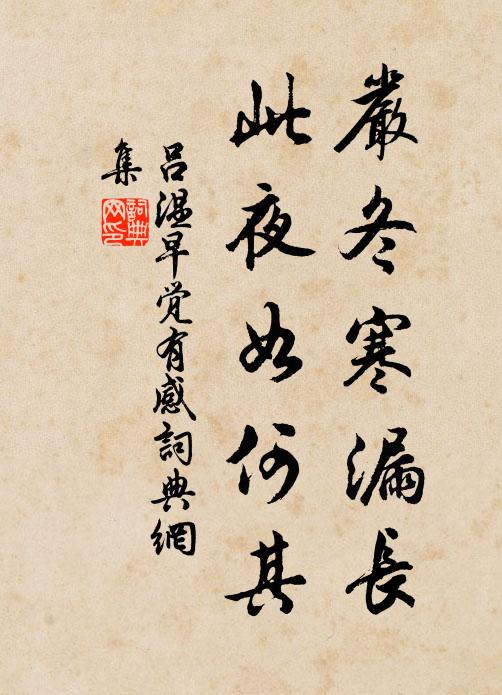 嚴冬寒漏長
此夜如何其
吕温早觉有感詞典網
集
詞典
网印